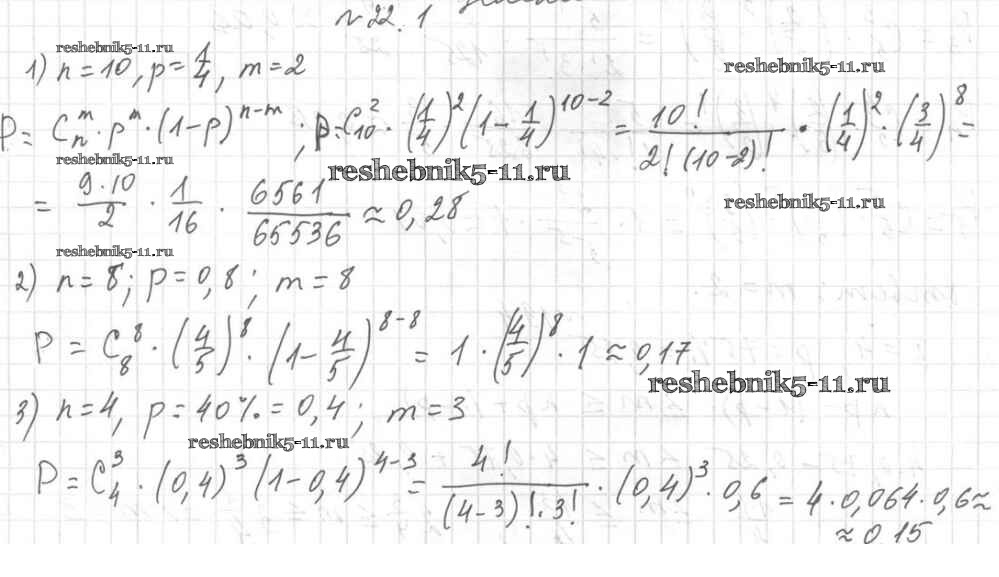 № 22. 1
reshebnik5-11.ru
1) n = 10, p = 1/4, m = 2
reshebnik5-11.ru
P = C_n^m · p^m · (1-p)^{n-m}; P = C_{10}^2 · (1/4)^2 (1 - 1/4)^{10-2} = 10!/(2! (10-2)!) · (1/4)^2 · (3/4)^8 =
reshebnik5-11.ru
reshebnik5-11.ru
= (9·10)/2 · 1/16 · 6561/65536 ≈ 0,28
reshebnik5-11.ru
reshebnik5-11.ru
2) n = 8; p = 0,8; m = 8
P = C_8^8 · (4/5)^8 · (1 - 4/5)^{8-8} = 1 · (4/5)^8 · 1 ≈ 0,17
reshebnik5-11.ru
3) n = 4, p = 40% = 0,4; m = 3
reshebnik5-11.ru
P = C_4^3 · (0,4)^3 (1-0,4)^{4-3} = 4!/((4-3)! · 3!) · (0,4)^3 · 0,6 = 4 · 0,064 · 0,6 ≈
≈ 0 15